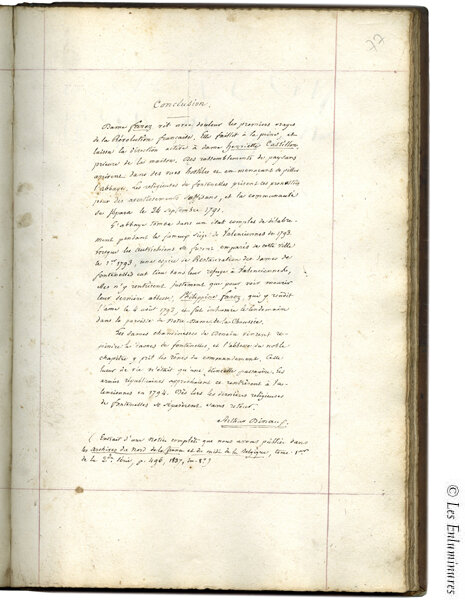 77
Conclusion.
Dame Farez vit avec douleur les premiers orages
de la Révolution française. Elle faillit à la peine, et
laissa la direction active à dame Henriette Castillon,
prieure de la maison. Des rassemblements de paysans
agirent dans des vues hostiles et en menaçant de piller
l'abbaye, les religieuses de fontenelles prirent ces
pour des avertissements suffisans, et la communauté
se sépara le 26 septembre 1791.
L'abbaye tomba dans un état complet de délabre-
ment pendant le fameux siège de Valenciennes de 1793.
Lorsque les Autrichiens se furent emparés de cette ville
le 1er 1793, une espèce de Restauration des dames de
fontenelles eut lieu dans leur refuge à Valenciennes,
elles n'y rentrèrent justement que pour voir mourir
leur dernière abbesse, Philippine Farez, qui y rendit
l'ame le 4 août 1793, et fut inhumée le lendemain
dans la paroisse de Notre-Dame de la Chaussée.
Les dames chanoinesses de Denain vinrent
les dames de fontenelles, et l'abbesse du noble
chapitre y prit les rênes du commandement. Cette
lueur de vie n'était qu'une étincelle passagère, les
armées républicaines approchaient et rentrèrent à Va-
lenciennes en 1794. Dès lors les dernières religieuses
de fontenelles se séparèrent sans retour.
Arthur Dinaux.
( Extrait d'une notice complète que nous avons publiée dans
les Archives du Nord de la france et du midi de la Belgique, tome 1er
de la 2de Série, p. 496, 1837, in-8°.)
© Les Enluminures